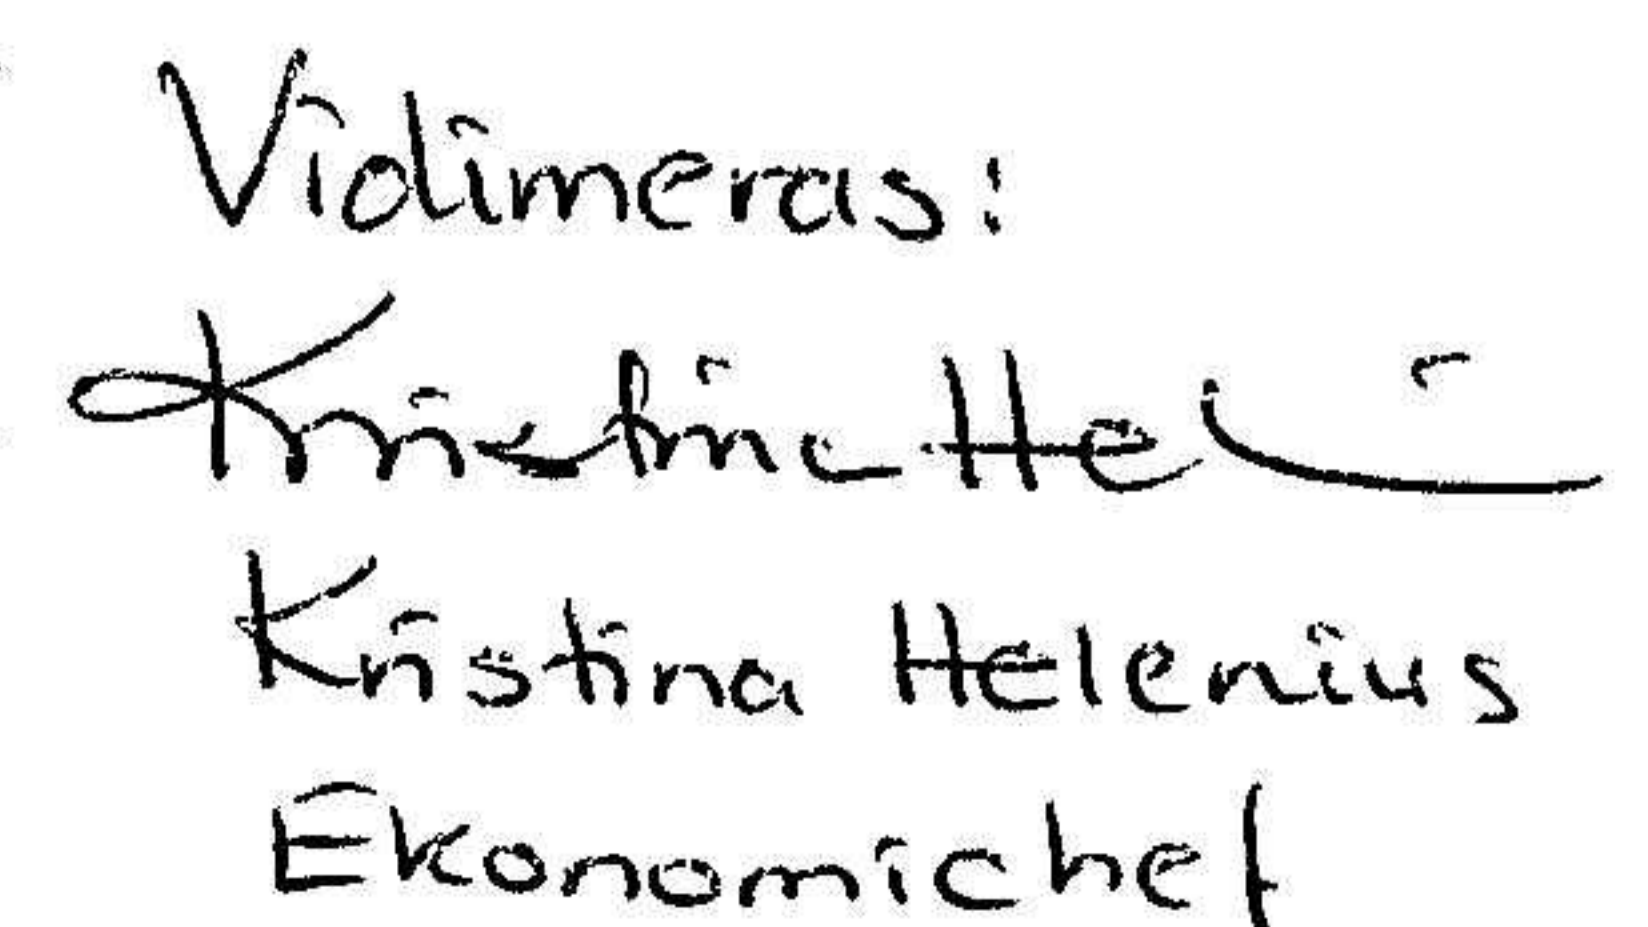 Vidimeras:
Kristina Hel
Kristina Helenius
Ekonomichef